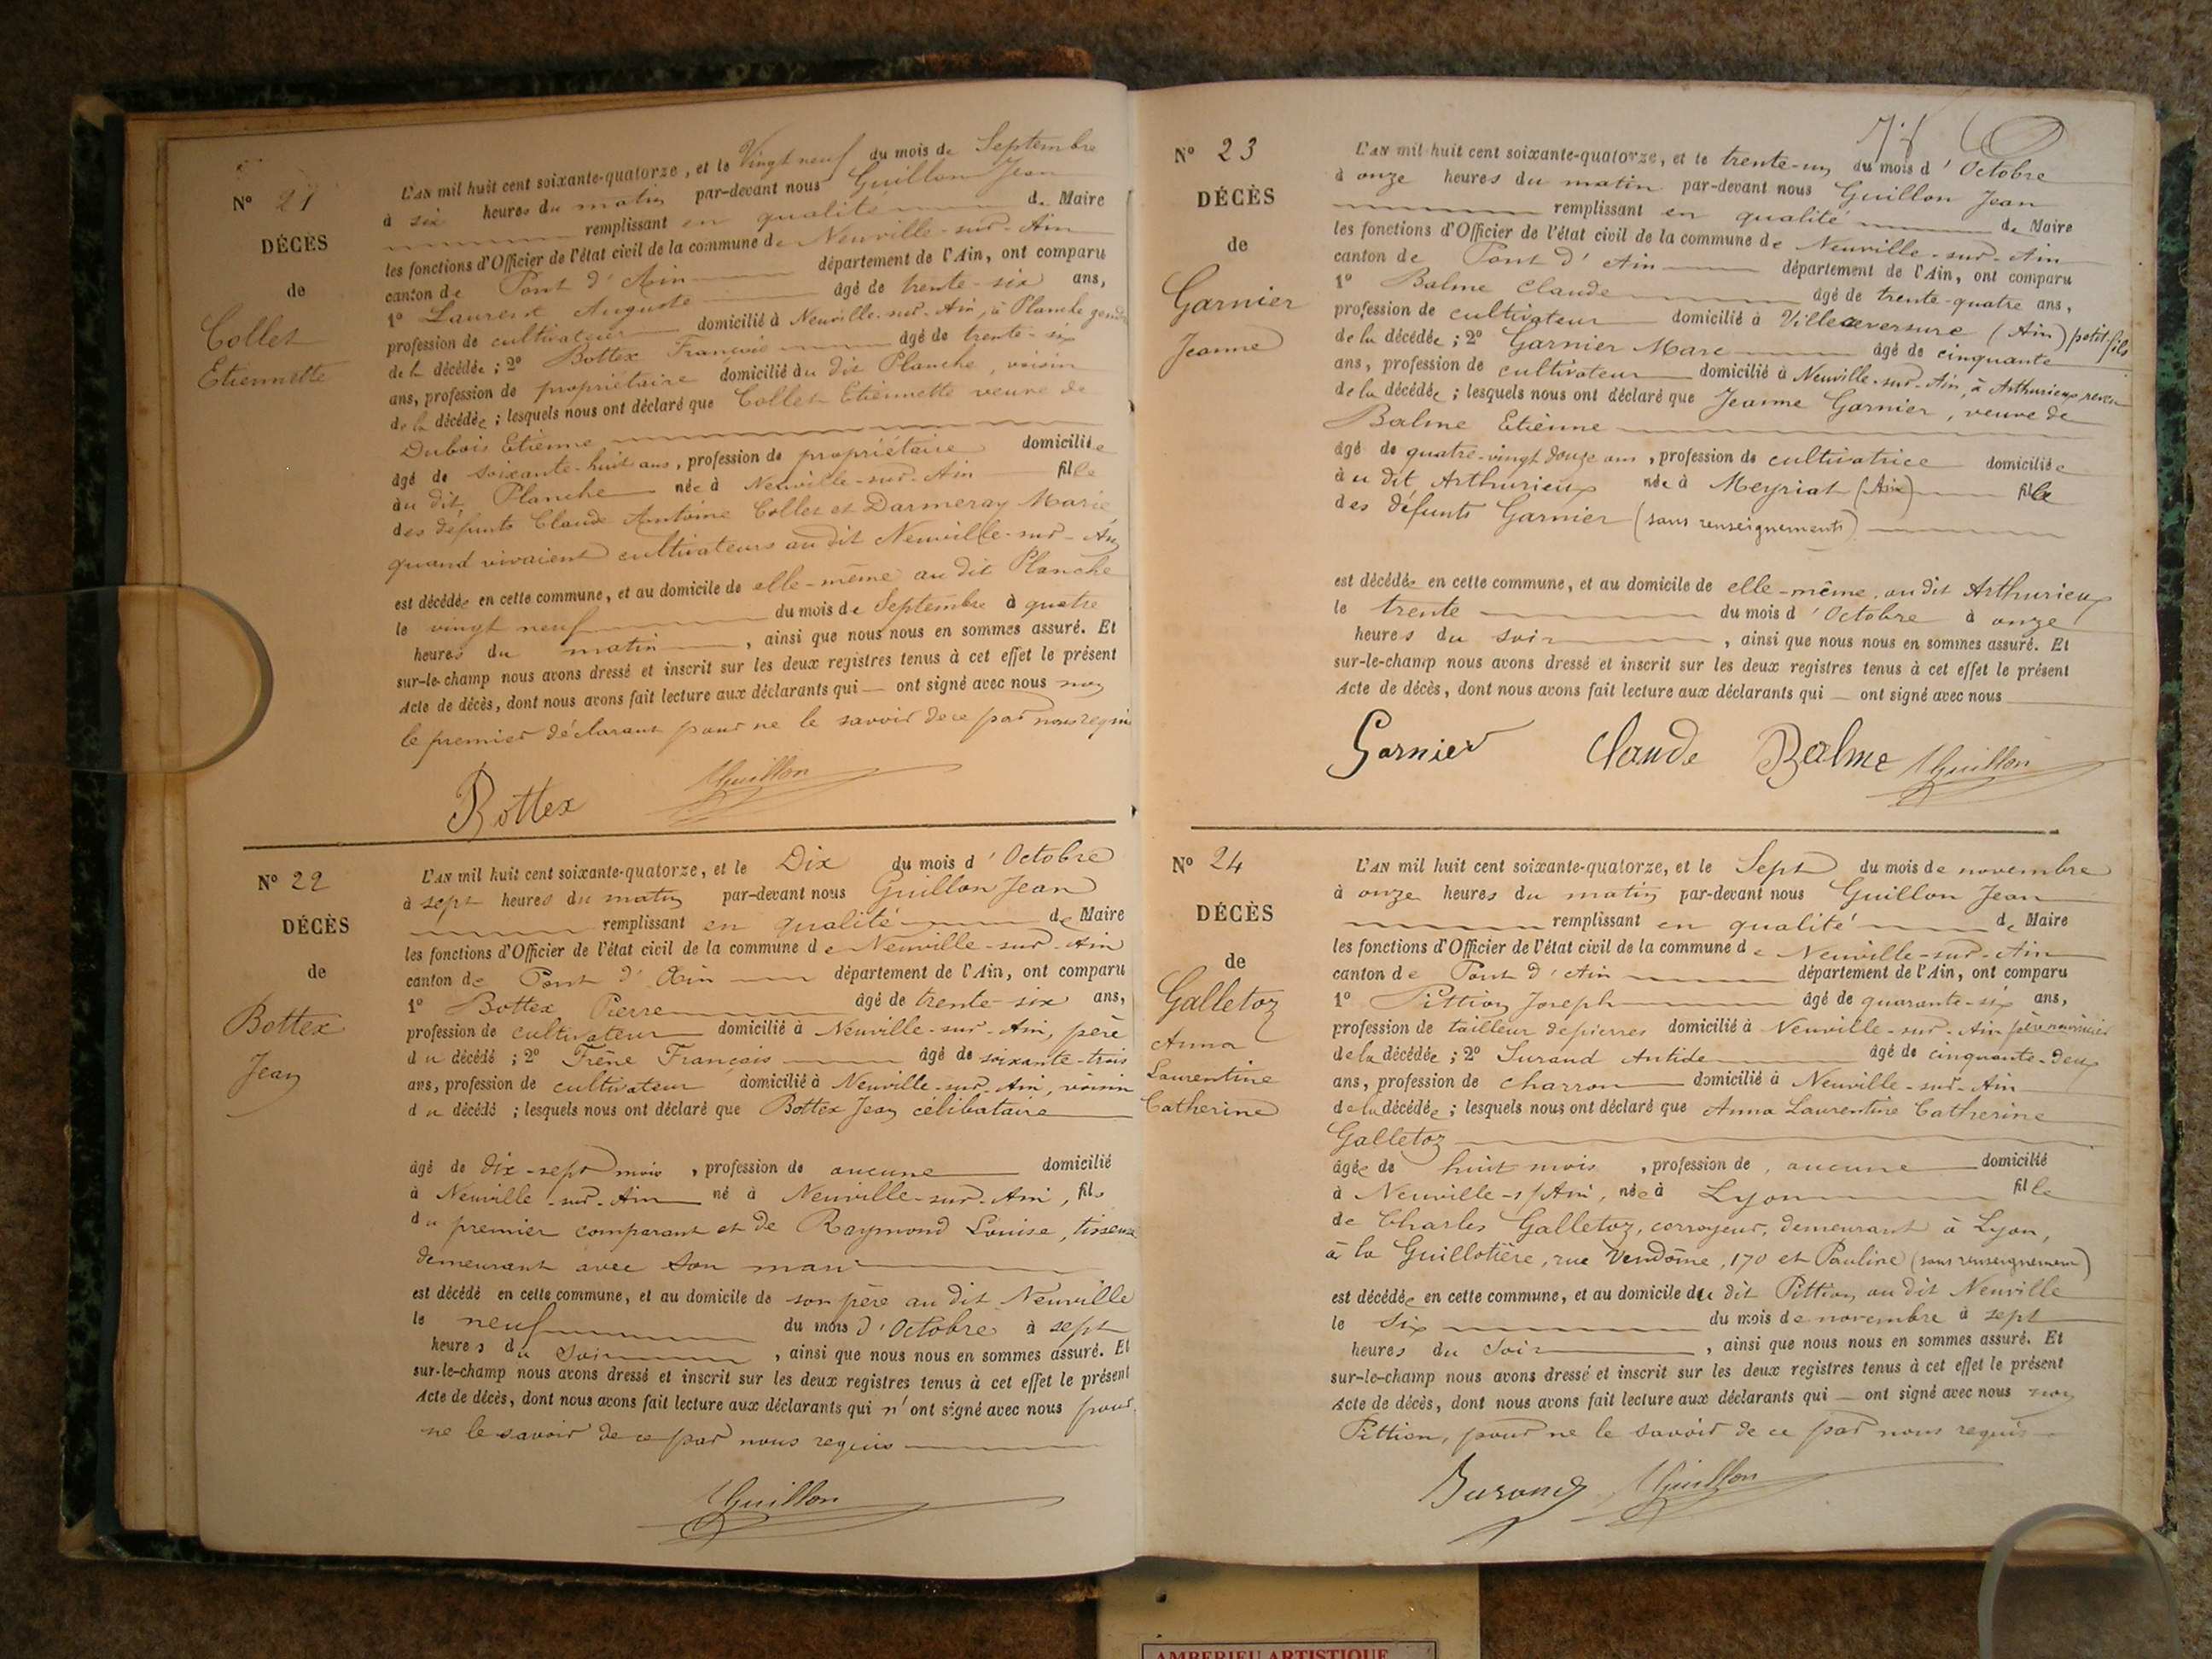 N° 21
DÉCÈS
de
Collet
Etiennette
L'AN mil huit cent soixante-quatorze, et le Vingt neuf du mois de Septembre
à six heures du matin par-devant nous Guillon Jean
remplissant en qualité de Maire
les fonctions d'Officier de l'état civil de la commune de Neuville-sur-Ain
canton de Pont d'Ain département de l'Ain, ont comparu
1° Laurent Auguste âgé de trente-six ans,
profession de cultivateur domicilié à Neuville-sur-Ain, à Planche gendre
de la décédée ; 2° Bottex François âgé de trente-six
ans, profession de propriétaire domicilié au dit Planche, voisin
de la décédée ; lesquels nous ont déclaré que Collet Etiennette veuve de
Dubois Etienne
âgé de soixante-huit ans, profession de propriétaire domiciliée
au dit Planche née à Neuville-sur-Ain fille
des défunts Claude Antoine Collet et Darmeray Marie
quand vivaient cultivateurs au dit Neuville-sur-Ain
est décédée en cette commune, et au domicile de elle-même au dit Planche
le vingt neuf du mois de Septembre à quatre
heures du matin, ainsi que nous nous en sommes assuré. Et
sur-le-champ nous avons dressé et inscrit sur les deux registres tenus à cet effet le présent
Acte de décès, dont nous avons fait lecture aux déclarants qui ont signé avec nous non
le premier déclarant pour ne le savoir de ce par nous requis
Bottex JGuillon
N° 22
DÉCÈS
de
Bottex
Jean
L'AN mil huit cent soixante-quatorze, et le Dix du mois d'Octobre
à sept heures du matin par-devant nous Guillon Jean
remplissant en qualité de Maire
les fonctions d'Officier de l'état civil de la commune de Neuville-sur-Ain
canton de Pont d'Ain département de l'Ain, ont comparu
1° Bottex Pierre âgé de trente-six ans,
profession de cultivateur domicilié à Neuville-sur-Ain, père
du décédé ; 2° Frêne François âgé de soixante-trois
ans, profession de cultivateur domicilié à Neuville-sur-Ain, voisin
du décédé ; lesquels nous ont déclaré que Bottex Jean célibataire
âgé de dix-sept mois, profession de aucune domicilié
à Neuville-sur-Ain né à Neuville-sur-Ain, fils
du premier comparant et de Raymond Louise, tisseuse
demeurant avec son mari
est décédé en cette commune, et au domicile de son père au dit Neuville
le neuf du mois d'Octobre à sept
heures du Soir, ainsi que nous nous en sommes assuré. Et
sur-le-champ nous avons dressé et inscrit sur les deux registres tenus à cet effet le présent
Acte de décès, dont nous avons fait lecture aux déclarants qui n'ont signé avec nous pour
ne le savoir de ce par nous requis
JGuillon
N° 23
DÉCÈS
de
Garnier
Jeanne
L'AN mil huit cent soixante-quatorze, et le trente-un du mois d'Octobre
à onze heures du matin par-devant nous Guillon Jean
remplissant en qualité de Maire
les fonctions d'Officier de l'état civil de la commune de Neuville-sur-Ain
canton de Pont d'Ain département de l'Ain, ont comparu
1° Balme Claude âgé de trente-quatre ans,
profession de cultivateur domicilié à Villereversure (Ain) petit-fils
de la décédée ; 2° Garnier Marc âgé de cinquante
ans, profession de cultivateur domicilié à Neuville-sur-Ain, à Arthurieux neveu
de la décédée ; lesquels nous ont déclaré que Jeanne Garnier, veuve de
Balme Etienne
âgé de quatre-vingt douze ans, profession de cultivatrice domiciliée
au dit Arthurieux née à Meyriat (Ain) fille
des défunts Garnier (sans renseignements)
est décédée en cette commune, et au domicile de elle-même, au dit Arthurieux
le trente du mois d'Octobre à onze
heures du soir, ainsi que nous nous en sommes assuré. Et
sur-le-champ nous avons dressé et inscrit sur les deux registres tenus à cet effet le présent
Acte de décès, dont nous avons fait lecture aux déclarants qui ont signé avec nous
Garnier Claude Balme JGuillon
N° 24
DÉCÈS
de
Galletoz
Anna
Laurentine
Catherine
L'AN mil huit cent soixante-quatorze, et le Sept du mois de novembre
à onze heures du matin par-devant nous Guillon Jean
remplissant en qualité de Maire
les fonctions d'Officier de l'état civil de la commune de Neuville-sur-Ain
canton de Pont d'Ain département de l'Ain, ont comparu
1° Pittion Joseph âgé de quarante-six ans,
profession de tailleur de pierres domicilié à Neuville-sur-Ain père nourricier
de la décédée ; 2° Surand Antide âgé de cinquante-deux
ans, profession de charron domicilié à Neuville-sur-Ain
de la décédée ; lesquels nous ont déclaré que Anna Laurentine Catherine
Galletoz
âgée de huit mois, profession de, aucune domicilié
à Neuville-s/Ain, née à Lyon fille
de Charles Galletoz, corroyeur, demeurant à Lyon,
à la Guillotière, rue Vendôme, 170 et Pauline (sans renseignement)
est décédée en cette commune, et au domicile du dit Pittion au dit Neuville
le six du mois de novembre à sept
heures du Soir, ainsi que nous nous en sommes assuré. Et
sur-le-champ nous avons dressé et inscrit sur les deux registres tenus à cet effet le présent
Acte de décès, dont nous avons fait lecture aux déclarants qui ont signé avec nous non
Pittion, pour ne le savoir de ce par nous requis
Surand JGuillon
AMBERIEU ARTISTIQUE